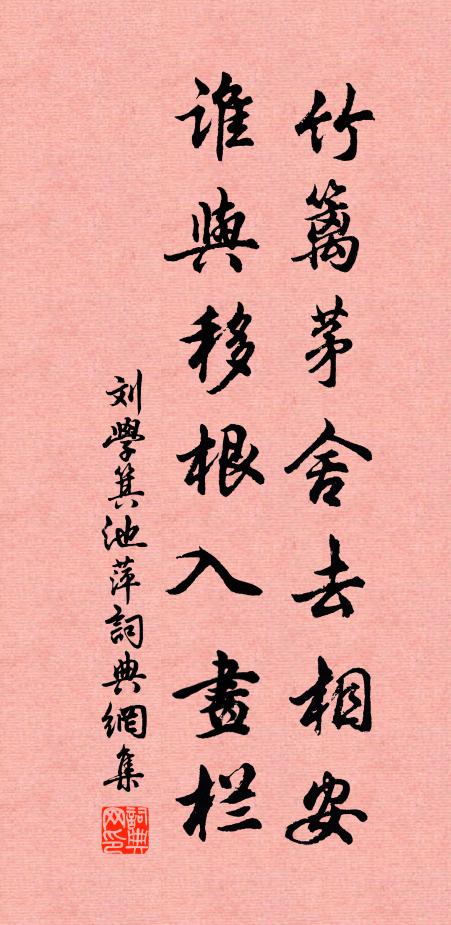 竹篱茅舍去相安
谁與移根入畫栏
刘學箕池萍詞典網集
詞典网印